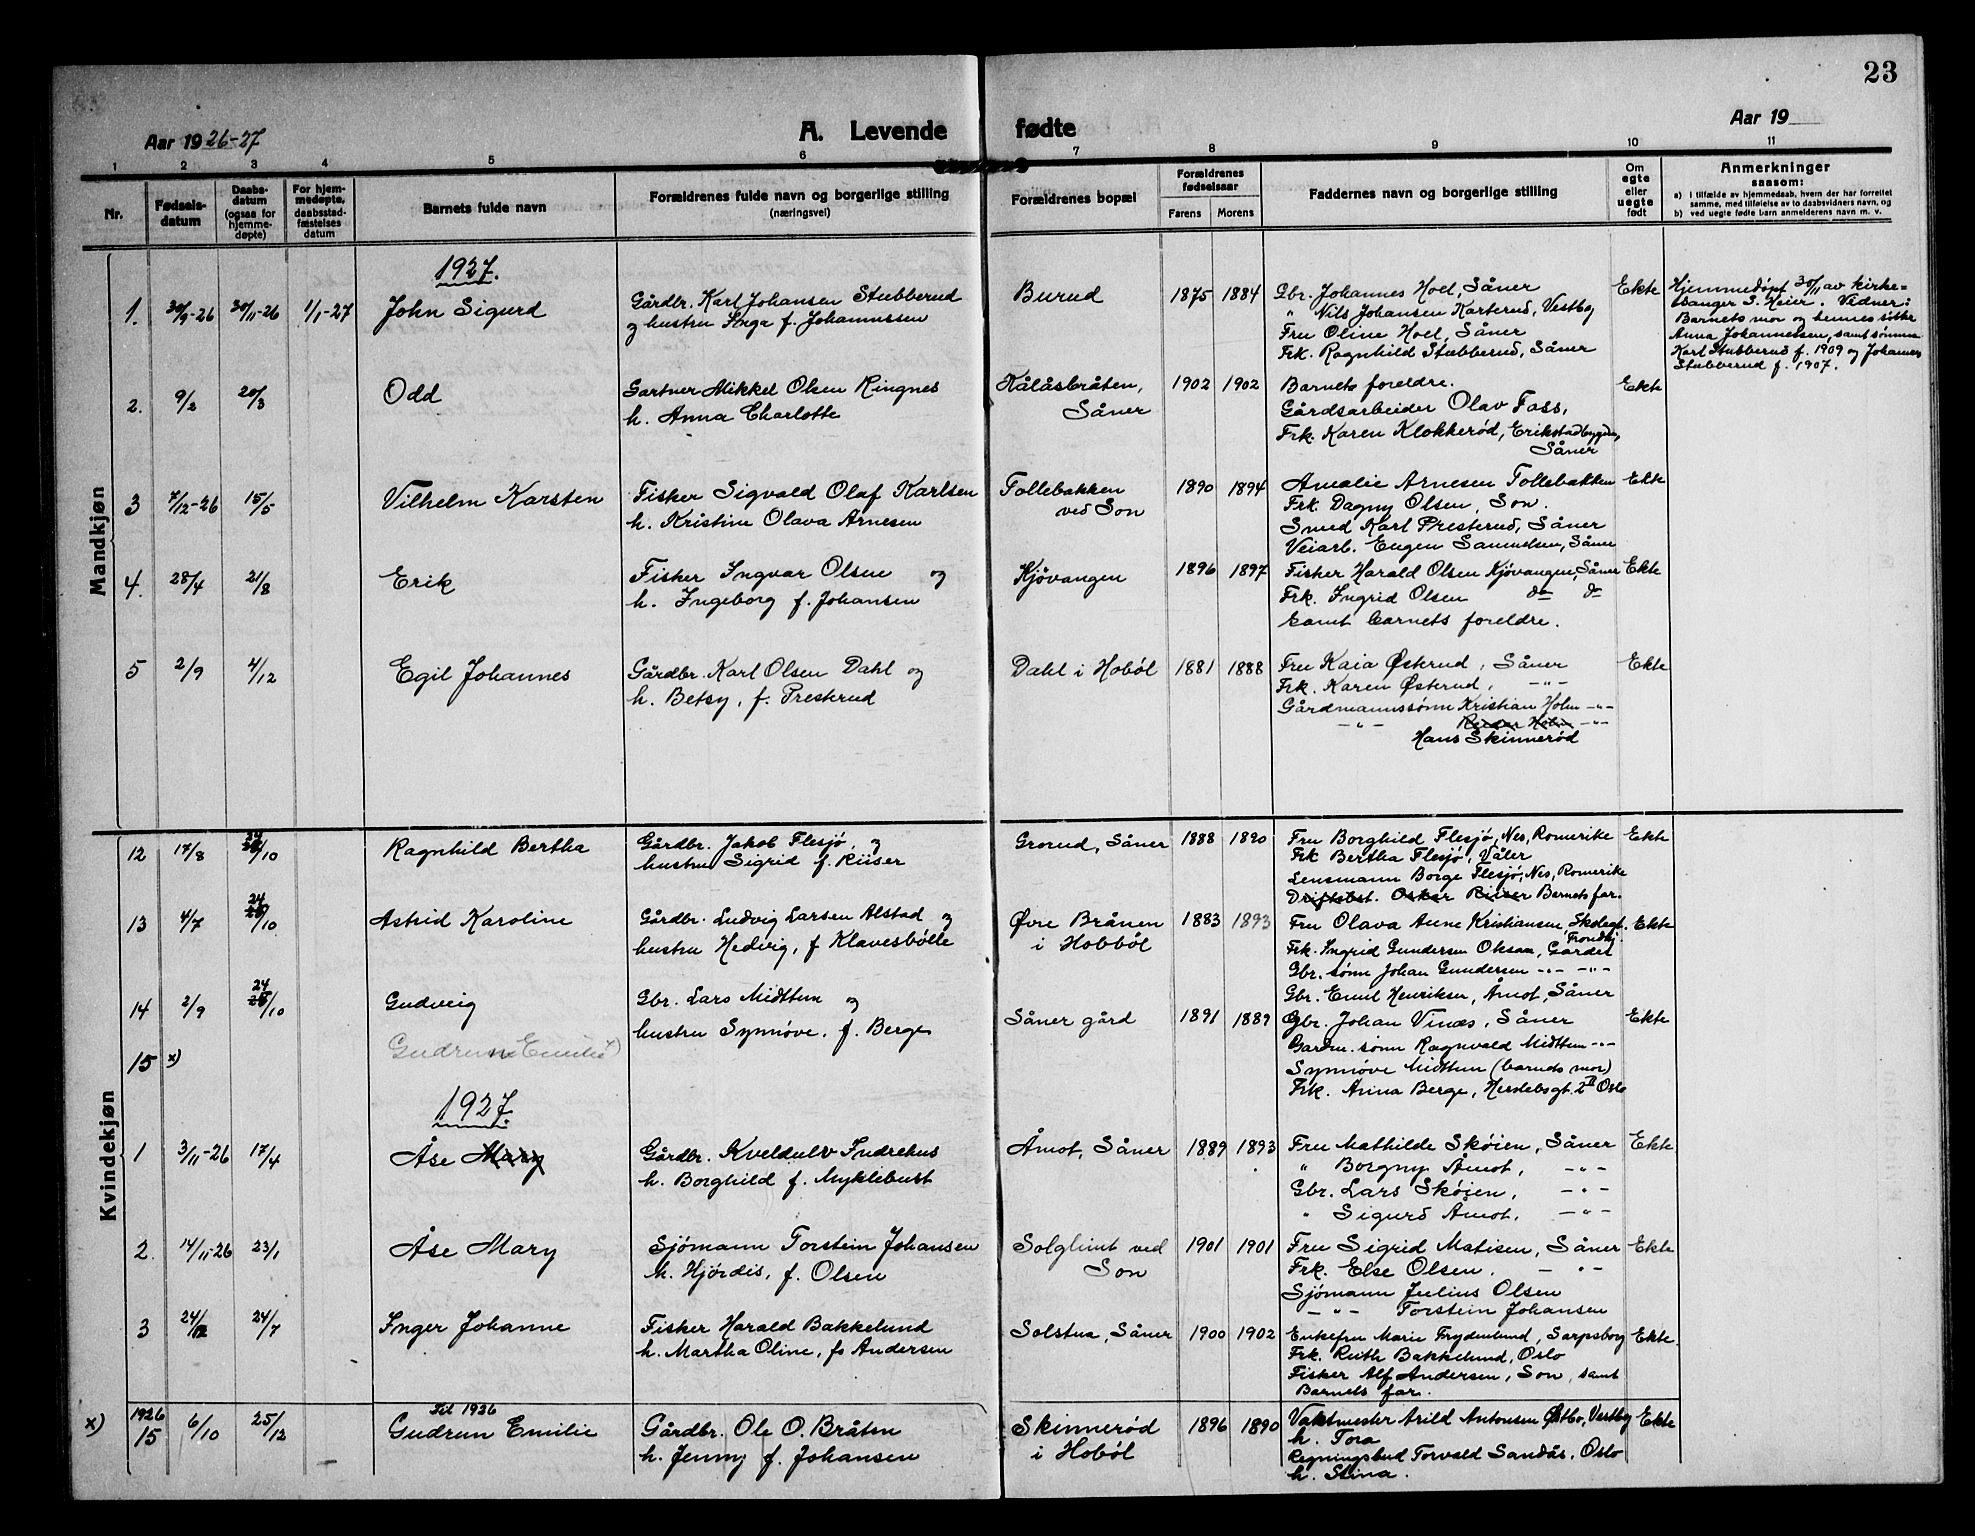 23
Aar 1926-27
A. Levende fødte
Aar 19
1 2 3 4 5 6 7 8 9 10 11
Nr.
Fødsels-
datum
Daabs-
datum
(ogsaa for
hjemme-
døpte)
For hjem-
medøpte,
daabsstad-
fæstelses
datum
Barnets fulde navn
Forældrenes fulde navn og borgerlige stilling
(næringsvei)
Forældrenes bopæl
Forældrenes
fødselsaar
Farens Morens
Faddernes navn og borgerlige stilling
Om
egte
eller
uegte
født
Anmerkninger
saasom:
a) i tilfælde av hjemmedaab, hvem der har forrettet
samme, med tilføielse av to daabsvidners navn, og
b) ved uegte fødte barn anmelderens navn m. v.
Mandkjøn
1927.
1. 30/9-26 30/11-26 1/1-27 John Sigurd
Gårdbr. Karl Johansen Stubberud
og hustru Inga f. Johannessen
Burud 1875 1884
Gbr. Johannes Hoel, Såner
" Nils Johansen Karterud, Vestby
Fru Oline Hoel, Såner
Frk. Ragnhild Stubberud, Såner
Ekte
Hjemmedöpt 30/11 av kirke=
sanger S. Heier. Vidner:
Barnets mor og hennes søster
Anna Johannessen, samt sønnene
Karl Stubberud f. 1909 og Johannes
Stubberud f. 1907.
2. 9/2 20/3 Odd
Gartner Mikkel Olsen Ringnes
h. Anna Charlotte
Kålåsbråten,
Såner
1902 1902
Barnets foreldre.
Gårdsarbeider Olav Foss,
Frk. Karen Klokkerød, Erikstadbygda,
Såner
Ekte
3 7/12-26 15/5 Vilhelm Karsten
Fisker Sigvald Olaf Karlsen
h. Kristine Olava Arnesen
Tollebakken
ved Son
1890 1894
Amalie Arnesen Tollebakken
Frk. Dagny Olsen, Son.
Smed Karl Presterud, Såner
Veiarb. Eugen Samuelsen, Såner
Ekte
4. 28/4 21/8 Erik
Fisker Ingvar Olsen og
h. Ingeborg f. Johansen
Kjövangen 1896 1897
Fisker Harald Olsen Kjövangen, Såner
Frk. Ingrid Olsen do do
samt barnets foreldre.
Ekte
5 2/9 4/12 Egil Johannes
Gårdbr. Karl Olsen Dahl og
h. Betsy, f. Presterud
Dahl i Hobøl 1881 1888
Fru Kaia Østerud, Såner
Frk. Karen Østerud, -"-
Gårdmannssønn Kristian Holm -"-
-"- Reidar Holm -"-
Hans Skinnerød
Ekte
Kvindekjøn
12 17/8 24/10 Ragnhild Bertha
Gårdbr. Jakob Flesjø, og
hustru Sigrid f. Riiser
Grorud, Såner 1888 1890
Fru Borghild Flesjø, Nes, Romerike
Frk Bertha Flesjø, Våler
Lensmann Borge Flesjø, Nes, Romerike
Driftsbest. Oskar Riiser Barnets far.
Ekte
13 4/7 24/10 Astrid Karoline
Gårdbr. Ludvig Larsen Alstad og
hustru Hedvig, f Klavesbølle
Øvre Brånen
i Hobböl
1883 1893
Fru Olava Aune Kristiansen, Skolegt.
Trondhj.
Frk. Ingrid Gundersen Oksum, Garder
Gbr. sønn Johan Gundersen -"- -"-
Gbr. Emil Henriksen, Åmot, Såner
Ekte
14 2/9 24/10 Gudveig
Gbr. Lars Midttun og
hustru Synnøve, f. Berge
Såner gård 1891 1889
Gbr. Johan Vinæs, Såner
Gardm. sønn Ragnvald Midttun -"-
Synnøve Midttun (barnets mor)
Frk. Anna Berge, Herslebsgt. 2 II Oslo
Ekte
15 x) Gudrun Emilie x)
1927.
1 3/11-26 17/4 Åse Mary
Gårdbr. Kveldulv Indrehus
h. Borghild f. Myklebust
Åmot, Såner 1889 1893
Fru Mathilde Skøien, Såner
" Borgny Åmot, -"-
Gbr. Lars Skøien, -"-
" Sigurd Åmot, -"-
Ekte
2. 14/11-26 23/1 Åse Mary
Sjömann Torstein Johansen
h. Hjördis, f. Olsen
Solglimt ved
Son
1901 1901
Fru Sigrid Matisen, Såner
Frk. Else Olsen. -"-
Sjömann Julius Olsen
-"- Torstein Johansen
Ekte
3 24/12 24/7 Inger Johanne
Fisker Harald Bakkelund
h. Martha Oline, f. Andersen
Solstua, Såner 1900 1902
Enkefru Marie Frydenlund, Sarpsborg
Frk. Ruth Bakkelund, Oslo
Fisker Alf Andersen, Son, samt
Barnets far.
Ekte
x) 1926
15 6/10 25/12
Til 1926
Gudrun Emilie
Gårdbr. Ole O. Bråten
h. Jenny f. Johansen
Skinnerød
i Hoböl
1896 1890
Vaktmester Arild Antonsen Østbo, Vestby
h. Tora
Regningsbud Torvald Sandås, Oslo
h. Stina.
Ekte